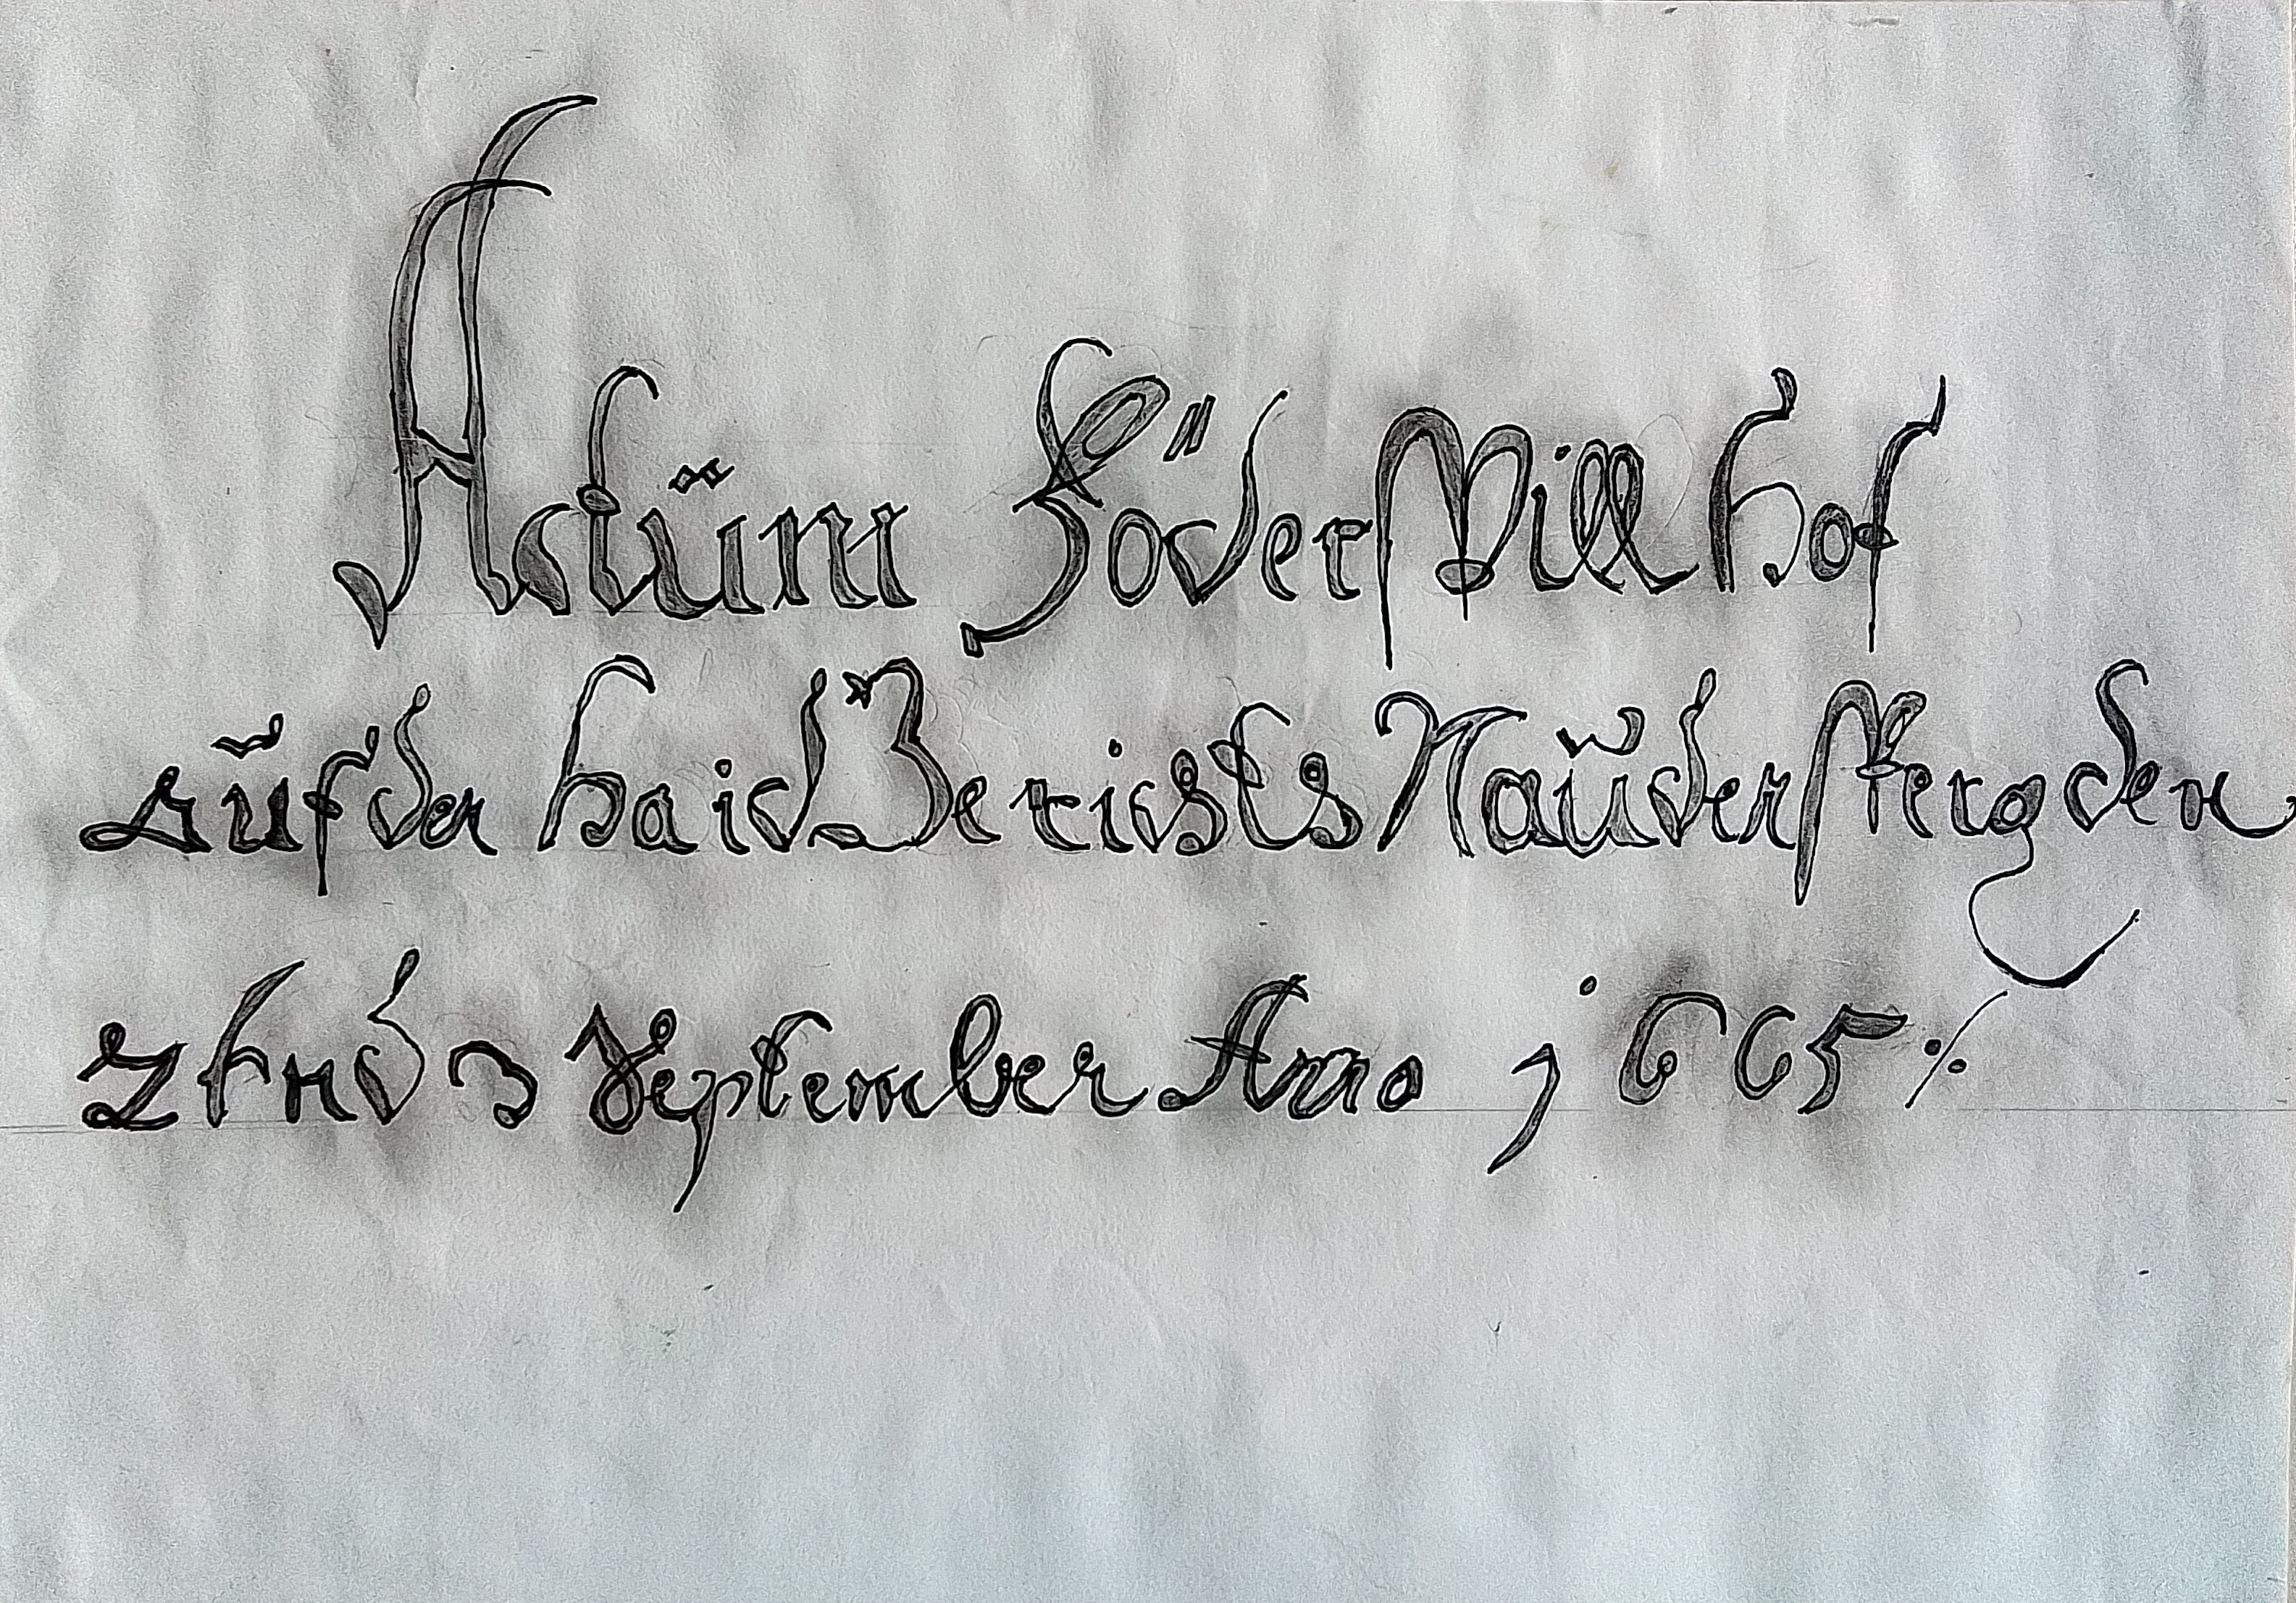 Actüm Föder Mill hof
aŭf der haid Gerichts Naŭdersperg den
2 tnd 3 September Anno j665 ⁒